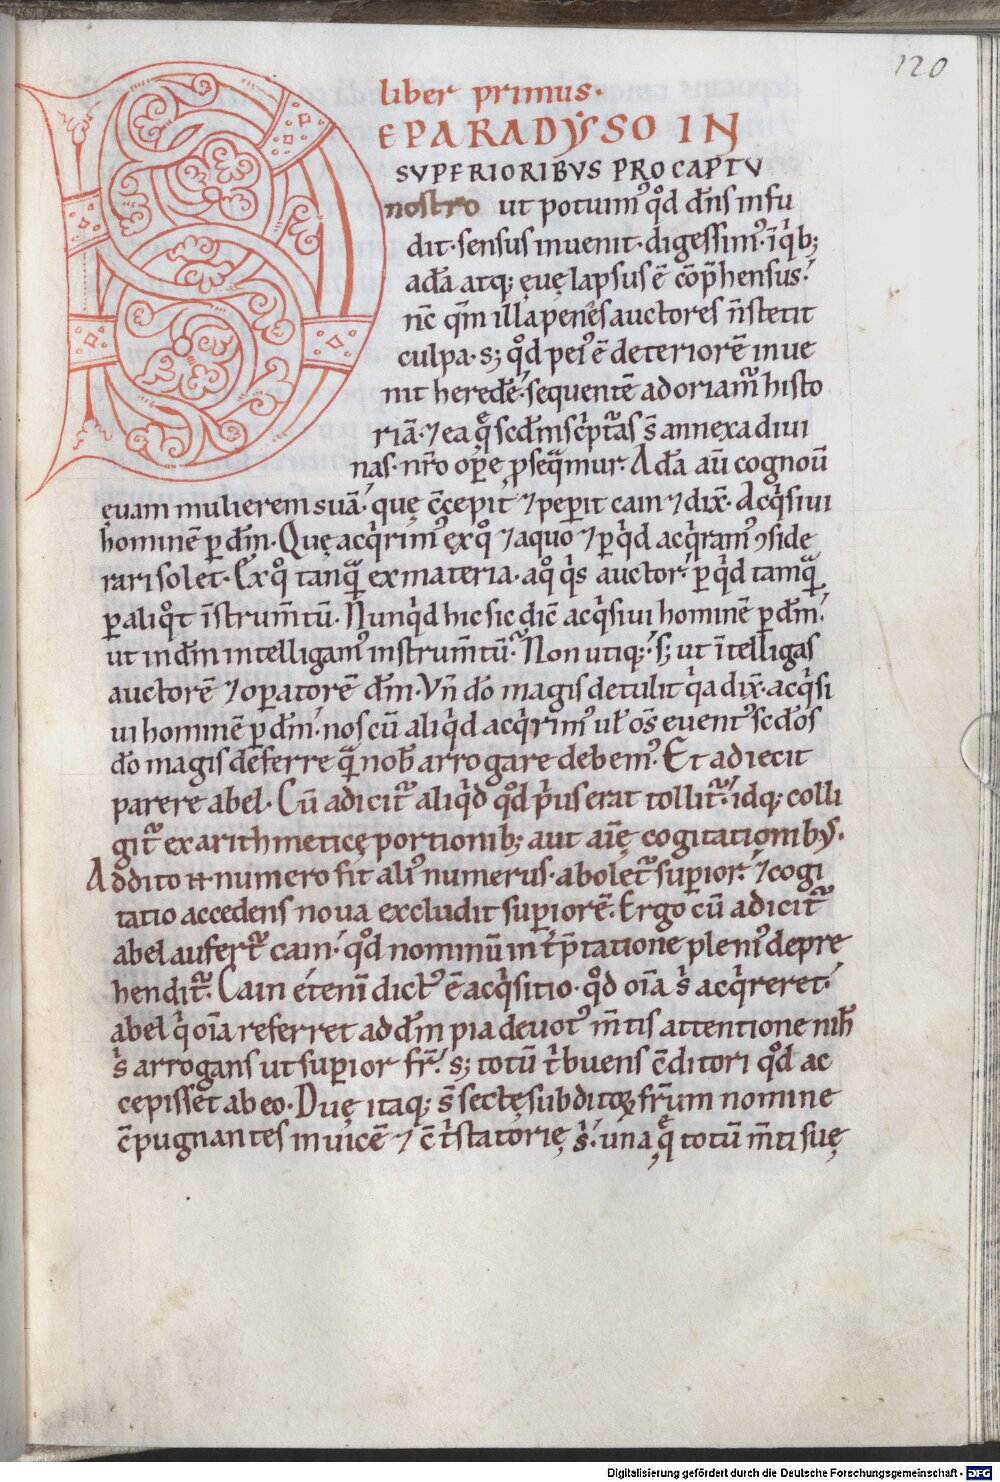 120
liber primus·
DE PARADYSO IN
SVPERIORIBVS PRO CAPTV
nostro ut potuim᾽ qd̄ dn̄s infu
dit· sensus inuenit· digessim᾽· īq'b;
adā atq; ęuę lapsus ē cōp̄hensus·
nc̄ qm̄ illa penes auctores n̄ stetit
culpa· s; qd̄ pei᾽ ē deteriorē inue
nit heredē· sequentē adoriam᾽ histo
riā· ⁊ ea q̨ scd̄m sc'pt᾽as s̄ annexa diui
nas· nr̄o ope p̄seq̄mur· Adā aū cognoū
ęuam mulierem suā· quę c̄cepit ⁊ peperit cain ⁊ dix̄· Acq'siui
hominē p dm̄· Quę acq'rim᾽ ex q° ⁊ a quo ⁊ p q'd acq'ram᾽ ꝯside
rari solet· Ex q° tanqua ex materia· a q° q's auctor· p q'd tamqua
p aliq°t īstrum̄tū· Nunq'd hic sic dic̄ acq'siui hominē p dm̄·
ut in dm̄ intelligam᾽ instrum̄tū· Non utiq;· s; ut ītelligas
auctorē ⁊ opatorē dm̄· Vn̄ do magis detulit q'a dix̄· acq'si
ui hominē p dm̄· nos cū aliq'd acq'rim᾽ ul̄ os̄ euent᾽ scd̄os
do magis deferre qua nob̄ arrogare debem᾽· Et adiecit
parere abel· Cū adicit᾽ aliq'd qd̄ p'us erat tollit᾽· idq; colli
git᾽ ex arithmeticę portionib; aut aīę cogitationib᾽·
Addito n̄ numero fit ali᾽ numerus· abolet᾽ supior· ⁊ cogi
tatio accedens noua excludit supiorē· Ergo cū adicit᾽
abel aufert᾽ cain· qd̄ nominū int᾽p̄tatione pleni᾽ depre
hendit᾽· Cain etenī dict᾽ ē acq'sitio· qd̄ oīa s' acq'reret·
abel q' oīa referret ad dm̄ pia deuot᾽ m̄tis attentione nih̄
s' arrogans ut supior fr̄· s; totū t'buens c̄ditori qd̄ ac
cepisset ab eo· Duę itaq; s̄ sectę sub duoꝝ fr̄um nomine
c̄pugnantes inuicē ⁊ c̄t'statorię s'· una q̨ totū m̄ti suę
Digitalisierung gefördert durch die Deutsche Forschungsgemeinschaft - DFG